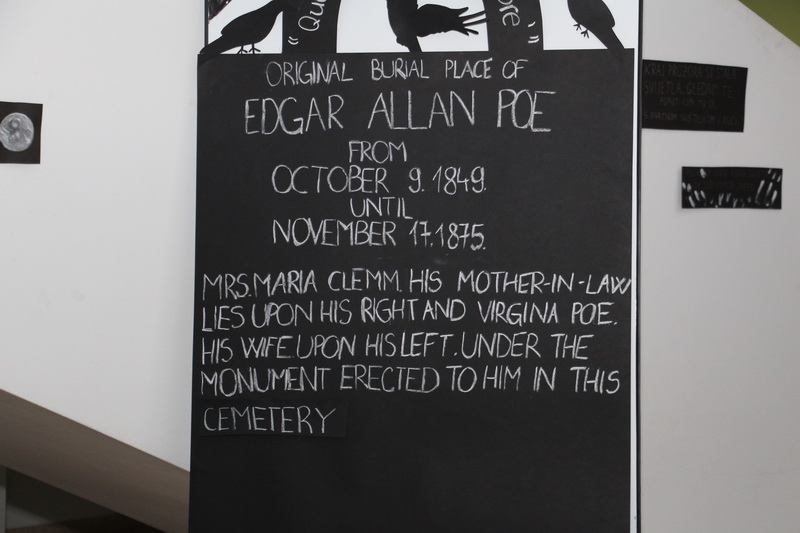 "Qu
ore"
ORIGINAL BURIAL PLACE OF
EDGAR ALLAN POE
FROM
OCTOBER 9. 1849.
UNTIL
NOVEMBER 17.1875.
MRS. MARIA CLEMM. HIS MOTHER-IN-LAW
LIES UPON HIS RIGHT AND VIRGINA POE.
HIS WIFE. UPON HIS LEFT. UNDER THE
MONUMENT ERECTED TO HIM IN THIS
CEMETERY